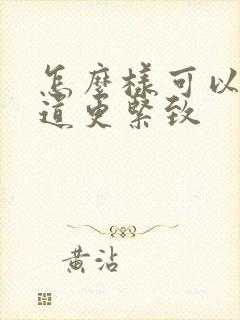 怎麼樣可以
道更緊致
黃沾